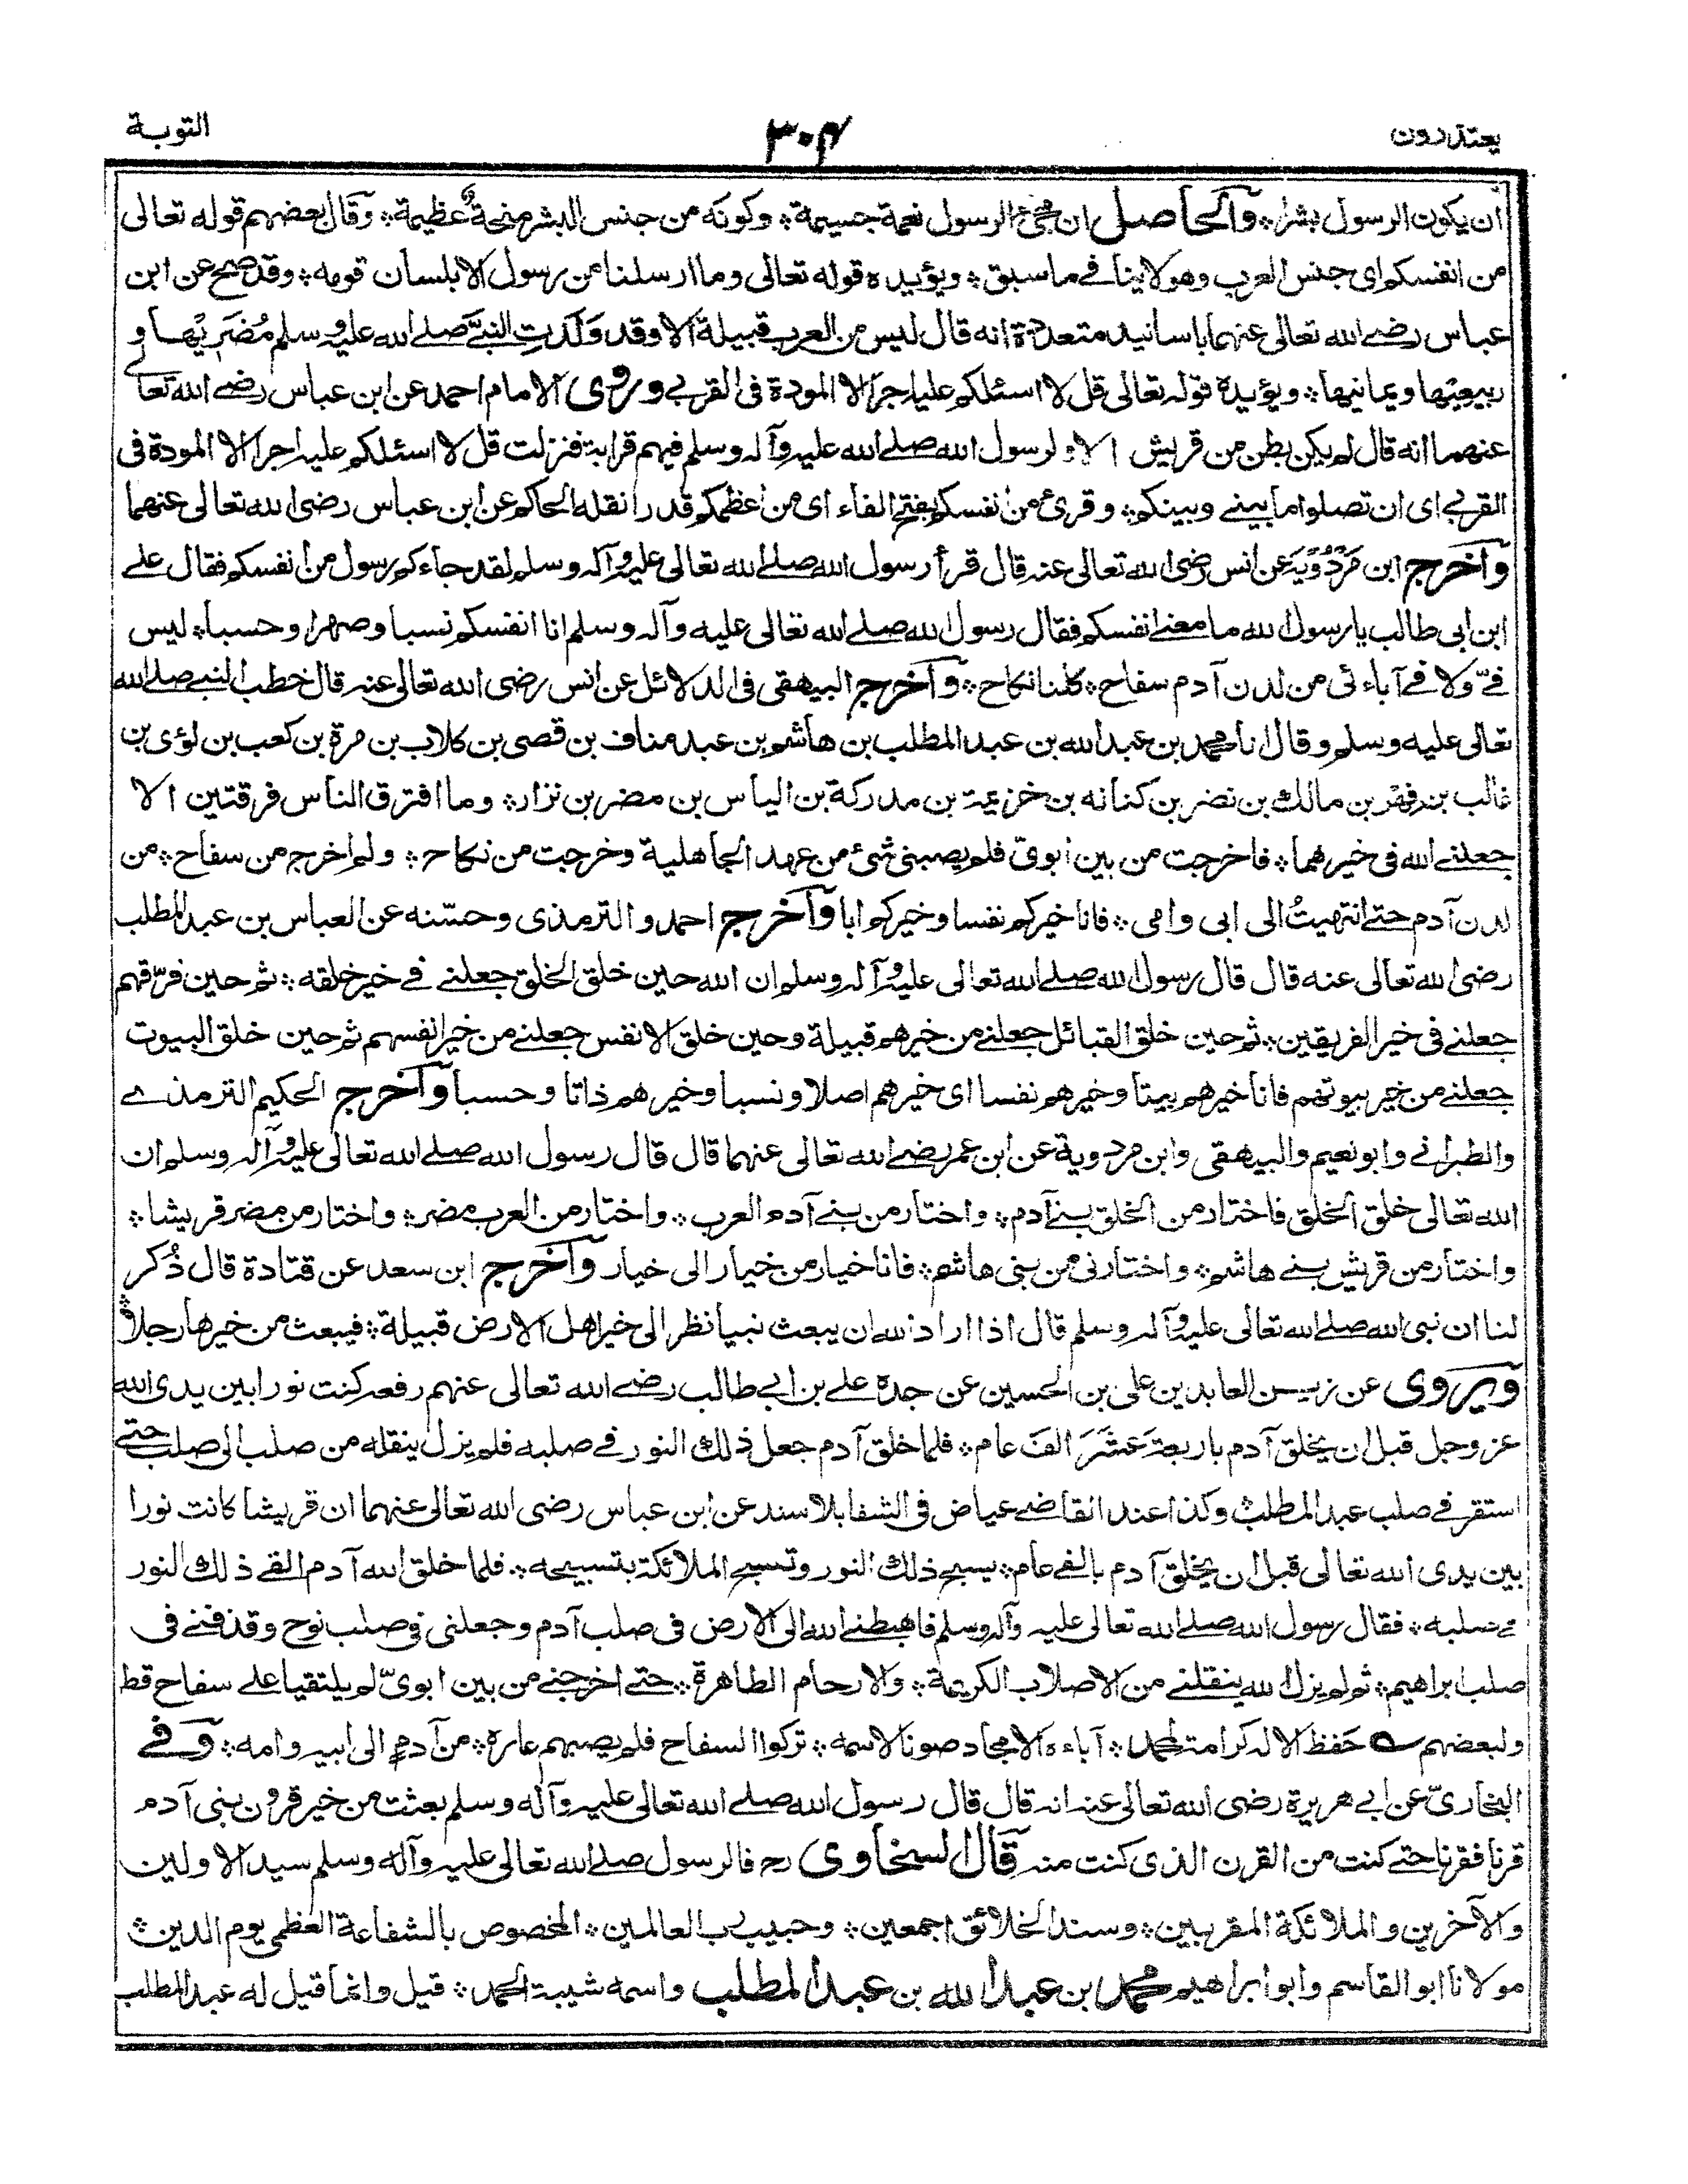 يعتذرون
٣٠٤
التوبة
ان يكون الرسول بشرا؞ والحاصل ان مجئ الرسول نعمة جسيمة؞ وكونه من جنس البشر منحة عظيمة؞ وقال بعضهم قوله تعالى
من انفسكم اى جنس العرب وهو لا ينافے ما سبق؞ ويؤيده قوله تعالى وما ارسلنا من رسول الا بلسان قومه؞ وقد صح عن ابن
عباس رضے الله تعالى عنهما باسانيد متعددة انه قال ليس من العرب قبيلة الا وقد وَلَدَتِ النبىَّ صلے الله عليه وسلم مُضَرِيّها و
ربيعيّها ويمانيها؞ ويؤيده قوله تعالى قل لا اسئلكم عليه اجرا الا المودة فى القربے وروى الامام احمد عن ابن عباس رضے الله تعالى
عنهما انه قال لم يكن بطن من قريش الا ولرسول الله صلے الله عليه وآله وسلم فيهم قرابة فنزلت قل لا اسئلكم عليه اجرا الا المودة فى
القربے اى ان تصلوا ما بينے وبينكم؞ وقرئ من انفسكم بفتح الفاء اى من اعظمكم قدرا نقله الحاكم عن ابن عباس رضى الله تعالى عنهما
وَاَخرج ابن مَرْدُوْيَه عن انس رضى الله تعالى عنه قال قرأ رسول الله صلے الله تعالى عليه وآله وسلم لقد جاءكم رسول من انفسكم فقال علے
ابن ابى طالب يا رسول الله ما معنے انفسكم فقال رسول الله صلے الله تعالى عليه وآله وسلم انا انفسكم نسبا وصهرا وحسبا؞ ليس
فےّ ولا فے آبائى من لدن آدم سفاح؞ كلنا نكاح؞ وَاَخرج البيهقى فى الدلائل عن انس رضى الله تعالى عنه قال خطب النبے صلے الله
تعالى عليه وسلم وقال انا محمد بن عبد الله بن عبد المطلب بن هاشم بن عبد مناف بن قصى بن كلاب بن مرة بن كعب بن لؤى بن
غالب بن فهر بن مالك بن نضر بن كنانه بن خزيمة بن مدركة بن الياس بن مضر بن نزار؞ وما افترق الناس فرقتين الا
جعلنے الله فى خيرهما؞ فاخرجت من بين ابوىّ فلم يصبنى شئ من عهد الجاهلية وخرجت من نكاح؞ ولم اخرج من سفاح؞ من
لدن آدم حتے انتهيتُ الى ابى وامى؞ فانا خيركم نفسا وخيركم ابا وَاَخرج احمد والترمذى وحسّنه عن العباس بن عبد المطلب
رضى الله تعالى عنه قال قال رسول الله صلے الله تعالى عليه وآله وسلم ان الله حين خلق الخلق جعلنے فے خير خلقه؞ ثم حين فرّقهم
جعلنے فى خير الفريقين؞ ثم حين خلق القبائل جعلنے من خيرهم قبيلة وحين خلق الانفس جعلنے من خير انفسهم ثم حين خلق البيوت
جعلنے من خير بيوتهم فانا خيرهم بيتا وخيرهم نفسا اى خيرهم اصلا ونسبا وخيرهم ذاتا وحسبا وَاَخرج الحكيم الترمذے
والطبرانے وابو نعيم والبيهقى وابن مردوية عن ابن عمر رضے الله تعالى عنهما قال قال رسول الله صلے الله تعالى عليه وآله وسلم ان
الله تعالى خلق الخلق فاختار من الخلق بنے آدم؞ واختار من بنے آدم العرب؞ واختار من العرب مضر؞ واختار من مضر قريشا؞
واختار من قريش بنے هاشم؞ واختارنى من بنى هاشم؞ فانا خيار من خيار الى خيار وَاَخرج ابن سعد عن قتادة قال ذُكر
لنا ان نبى الله صلے الله تعالى عليه وآله وسلم قال اذا اراد الله ان يبعث نبيا نظر الى خير اهل الارض قبيلة؞ فيبعث من خيرها رجلا؞
وَيروى عن زين العابدين على بن الحسين عن جده علے بن ابے طالب رضے الله تعالى عنهم رفعه كنت نورا بين يدى الله
عز وجل قبل ان يخلق آدم باربعةَ عَشَرَ الفَ عام؞ فلما خلق آدم جعل ذلك النور فے صلبه فلم يزل ينقله من صلب الى صلب حتے
استقر فے صلب عبد المطلب؞ وكذا عند القاضے عياض فى الشفا بلا سند عن ابن عباس رضى الله تعالى عنهما ان قريشا كانت نورا
بين يدى الله تعالى قبل ان يخلق آدم بالفے عام؞ يسبح ذلك النور وتسبح الملائكة بتسبيحه؞ فلما خلق الله آدم القے ذلك النور
فے صلبه؞ فقال رسول الله صلے الله تعالى عليه وآله وسلم فاهبطنے الله الى الارض فى صلب آدم وجعلنى فى صلب نوح وقذفنے فى
صلب ابراهيم؞ ثم لم يزل الله ينقلنے من الاصلاب الكريمة؞ والارحام الطاهرة؞ حتے اخرجنے من بين ابوىّ لم يلتقيا علے سفاح قط
ولبعضهم حَفظ الاله كرامة لمحمد؞ آباءه الامجاد صونا لاسمه؞ تركوا السفاح فلم يصبهم عاره؞ من آدم الى ابيه وامه؞ وَفے
البخارىّ عن ابے هريرة رضى الله تعالى عنه انه قال قال رسول الله صلے الله تعالى عليه وآله وسلم بعثت من خير قرون بنى آدم
قرنا فقرنا حتے كنت من القرن الذى كنت منه قَال السخاوى رحـ فالرسول صلے الله تعالى عليه وآله وسلم سيد الاولين
والآخرين والملائكة المقربين؞ وسند الخلائق اجمعين؞ وحبيب رب العالمين؞ المخصوص بالشفاعة العظمى يوم الدين؞
مولانا ابو القاسم وابو ابراهيم محمد ابن عبد الله بن عبد المطلب واسمه شيبة الحمد؞ قيل وانما قيل له عبد المطلب